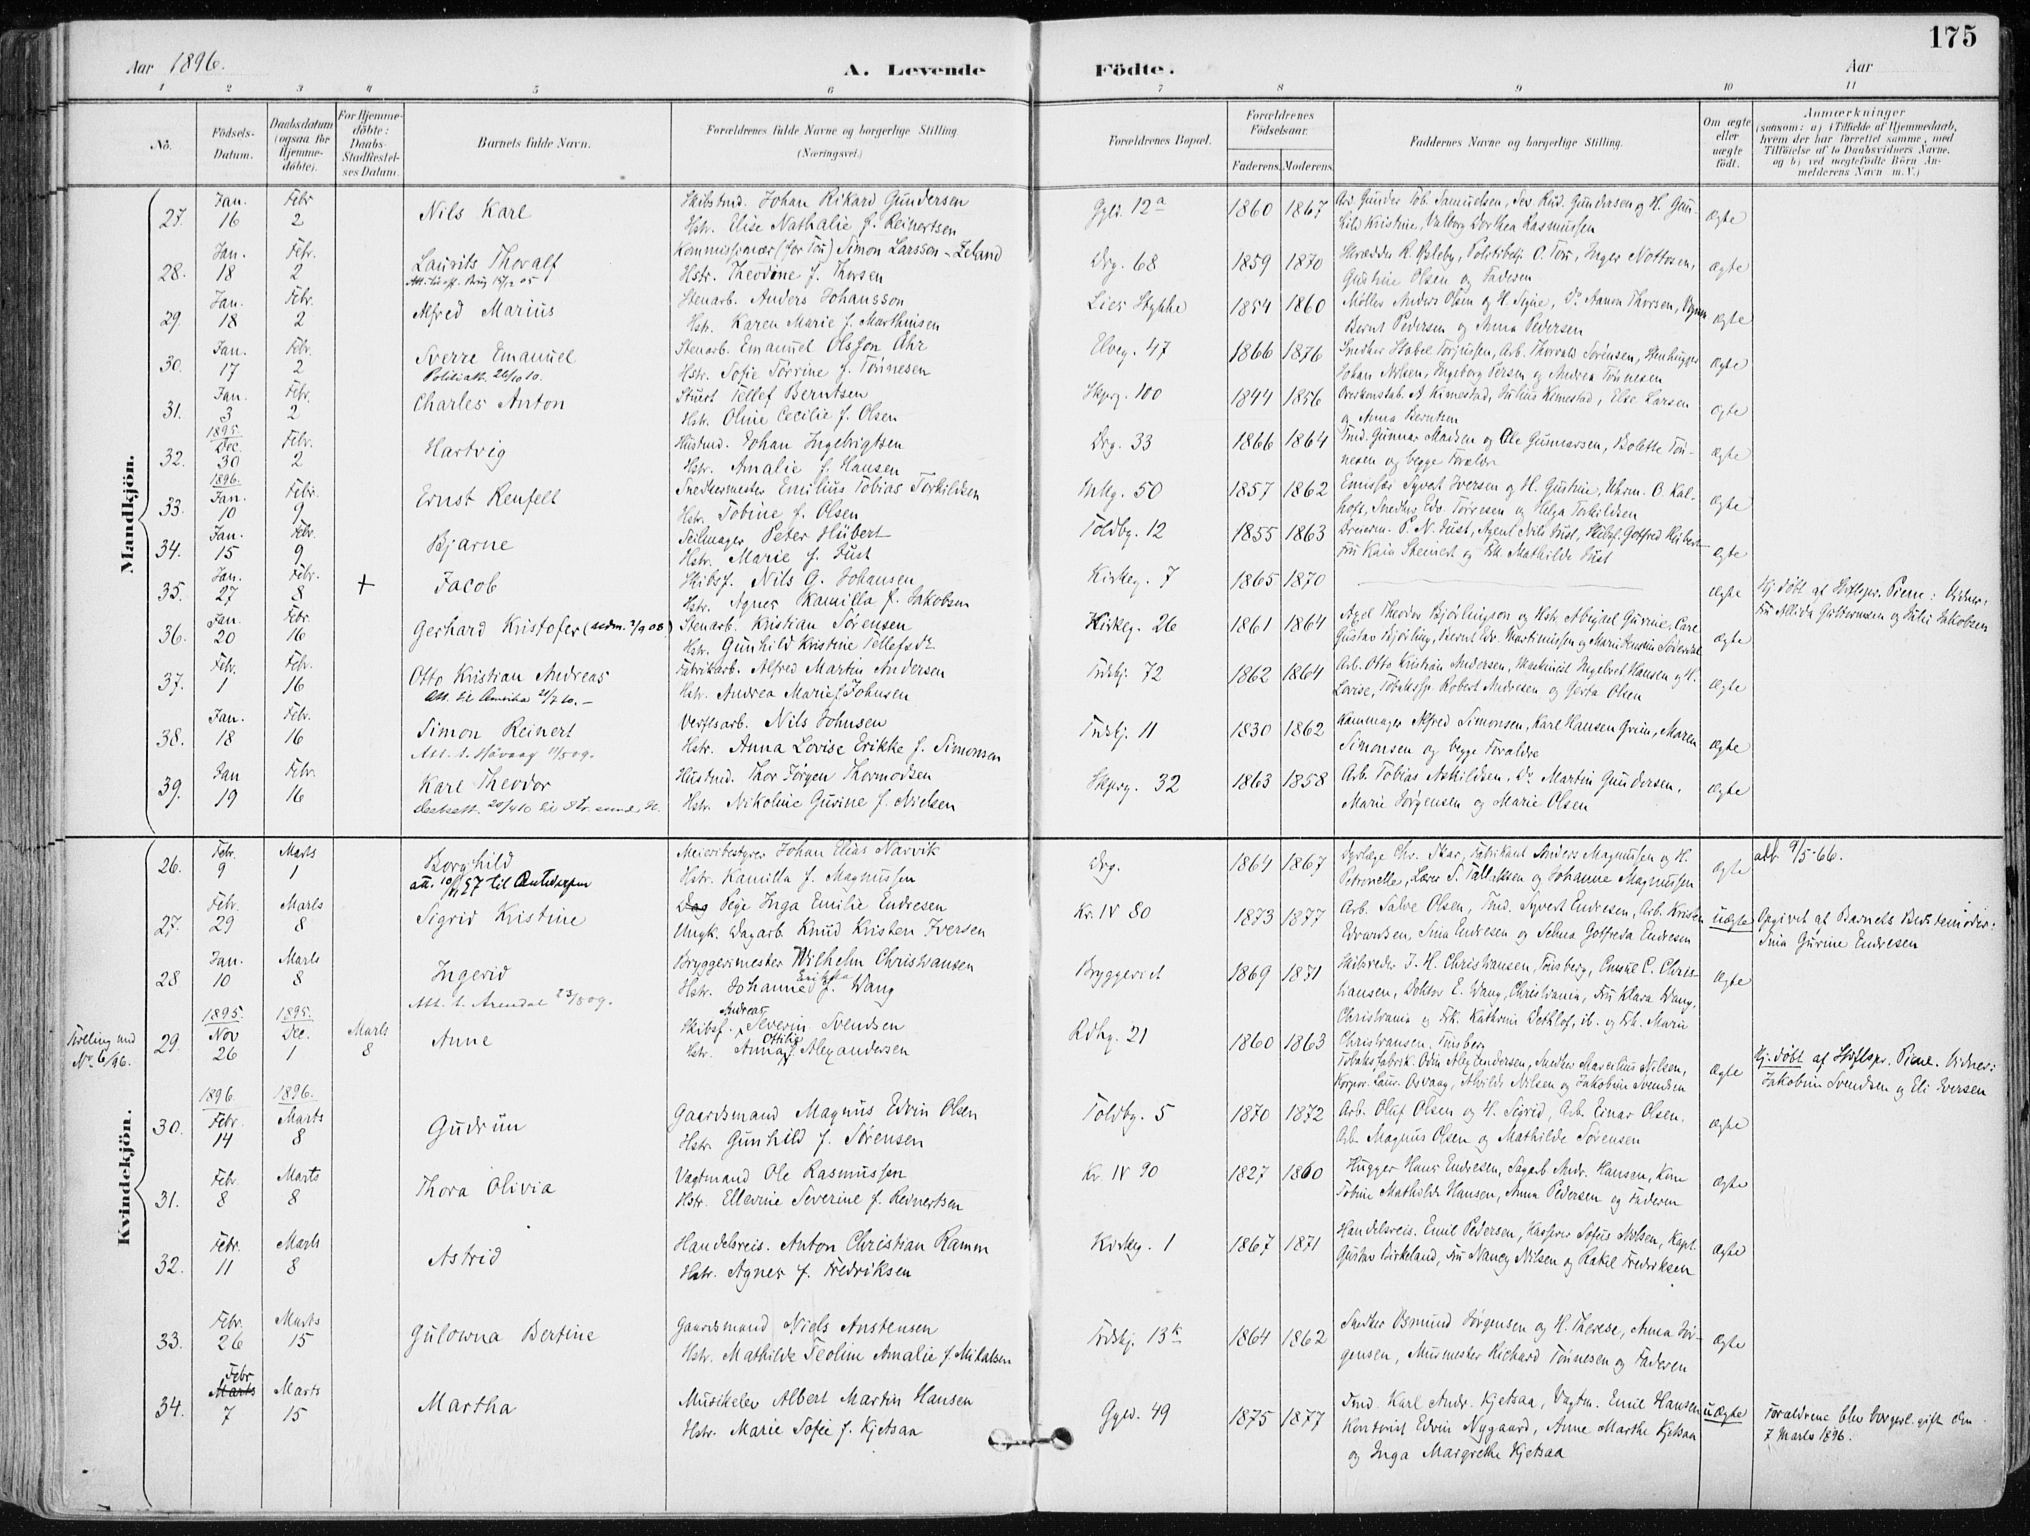 175
Aar 1896. A. Levende Födte. Aar
1 2 3 4 5 6 7 8 9 10 11
No. Födsels-Datum. Daabsdatum (ogsaa for Hjemme-döbte). For Hjemme-döbte: Daabs-Stadfæstel-ses Datum. Barnets fulde Navn. Forældrenes fulde Navne og borgerlige Stilling. (Næringsvei.) Forældrenes Bopæl. Forældrenes Födselsaar. Faderens. Moderens. Faddernes Navne og borgerlige Stilling. Om ægte eller uægte födt. Anmærkninger (saasom: a) i Tilfælde af Hjemmedaab, hvem der har forrettet samme, med Tilföielse af to Daabsvidners Navne, og b) ved uægtefödte Börn An-melderens Navn m. V.)
Mandkjön.
27. Jan. 16 Febr 2 Nils Karl Skibstmd. Johan Rikard Gundersen
Hstr. Elise Nathalie f. Reinertsen
Gyld. 12a 1860 1867 Arb. Gunder Tob. Samuelsen, Sev. Gundersen og H. Gun-
hild Kristine, Valborg Dorthea Rasmussen ægte
28. Jan. 18 Febr. 2 Laurits Thoralf Kommissionær (for Tou) Simon Larsson-Zeland
Hstr. Theodine f. Thorsen
Drg. 68 1859 1870 Inger Nottosen,
Gustine Olsen og Faderen ægte
29. Jan. 18 Febr. 2 Alfred Marius Stenarb. Anders Johansson
Hstr. Karen Marie f. Marthinsen
Lies Stykke 1854 1860 Møller Anders Olsen og H. Signe, Do Aanon Thorsen,
Bernt Pedersen og Anna Pedersen ægte
30. Jan. 17 Febr. 2 Sverre Emanuel Stenarb. Emanuel Olsson Åhr
Politiatt. 26/10 10. Hstr. Sofie Sørrine f. Tønnesen
Elveg. 47 1866 1876 Snedker Stabel Torjussen, Arb. Thorvald Sørensen, Stenhugger
Johan Nilsen, Ingeborg Persen og Andrea Tønnesen ægte
31. Jan. 3 Febr. 2 Charles Anton Stuert Tellef Berntsen
Hstr. Oline Cecilie f. Olsen
Skprg. 100 1844 1856 Overkonstab. A. Kimestad, Julius Kimestad, Else Larsen
og Anna Berntsen ægte
32. 1895 Dec. 30 Febr. 2 Hartvig Hustmd. Johan Ingebrigtsen
Hstr. Amalie f. Hansen
Drg. 33 1866 1864 Tmd. Gunnar Madsen og Ole Gunnarsen, Bolette Tøn-
nesen og begge Forældre ægte
33. 1896. Jan. 10 Febr. 9 Ernst Renfelt Snedkermester Emilius Tobias Torkildsen
Hstr. Tobine f. Olsen
50 1857 1862 Syvert Iversen og H. Gustine, Uhrm. O. Kal-
hoft, Snedker Edv. Tørresen og Helga Torkildsen ægte
34. Jan. 15 Febr. 9 Bjarne Seilmager Peter Hübert
Hstr. Marie f. Just
Toldbg. 12 1855 1863 P. N. Just, Agent Nils Just, Skibsf. Gotfred Hübert
Fru Kaia Steinert og Frk. Mathilde Just ægte
35. Jan. 27 Febr. 8 + Jacob Skibsf. Nils G. Johansen
Hstr. Agnes Kamilla f. Jakobsen
Kirkeg. 7 1865 1870 ægte Hj. døbt af Stiftspr. Piene: Vidner:
Fru Allida Guttormsen og Julie Jakobsen
36. Jan. 20 Febr. 16 Gerhard Kristofer Stenarb. Kristian Sörensen
Hstr. Gunhild Kristine Tellefsdr
Kirkeg. 26 1861 1864 Axel Theodor Bjørlingson og Hstr Abigael Gurine, Carl
Gustav Bjørling, Bernt Edv. Martinussen og Søderdal ægte
37. Febr. 1 Febr. 16 Otto Kristian Andreas Fabrikarb. Alfred Martin Andersen
Att. til Amerika 21/7 10. Hstr. Andrea Marie f. Johnsen
Tudskj. 72 1862 1864 Arb. Otto Kristian Andersen, Maskinist Ingebret Hansen og H.
Lovise, Tobakssp. Robert Andresen og Gerta Olsen ægte
38. Jan. 18 Febr. 16 Simon Reinert Verftsarb. Nils Johnsen
Att. t. Høvaag 11/8 09. Hstr. Anna Lovise Erikke f. Simonsen
Tudskj. 11 1830 1862 Kammager Alfred Simonsen, Karl Hansen Grim, Maren
Simonsen og begge Forældre ægte
39. Jan 19 Febr. 16 Karl Theodor Hustmd. Thor Jørgen Thormodsen
Hstr. Nikoline Gurine f. Nielsen
Skprg. 32 1863 1858 Arb. Tobias Askildsen, Do Martin Gundersen,
Marie Jørgensen og Marie Olsen ægte
Kvindekjön.
26. Febr. 9 Marts 1 Borghild Meieribestyrer Johan Elias Narvik
til Antwerpen Hstr. Kamilla f. Magnussen
Drg. 1864 1867 Dyrlæge Chr. Skar, Fabrikant Anders Magnussen og H.
Petronelle, Lærer S. Tallaksen og Johanne Magnussen ægte 9/5-66.
27. Febr. 29 Marts 8 Sigrid Kristine Pige Inga Emilie Endresen
Ungk. Dagarb. Knud Kristen Iversen
Kr. IV 80 1873 1877 Arb. Salve Olsen, Tmd. Syvert Endresen, Arb. Kristen
Edvardsen, Sina Endresen og Selma Gotfreda Endresen uægte Opgivet af Barnets Bedstemoder:
Sina Gurine Endresen
28 Jan. 10 Marts 8 Ingerid Bryggerimester Wilhelm Christiansen
Att. t. Arendal 23/8 09. Hstr. Johanne Erikka f. Wang
Bryggeriet 1869 1871 Skibsreder J. H. Christiansen, Tønsberg, Consul C. Chris-
tiansen, Doktor E. Wang, Christiania, Fru Klara Wang,
Christiania og Frk. Kathrine Dethlof, ib. og Frk. Marie
Christiansen, Tønsberg ægte
Tvilling med
No 6/96.
29. 1895 Nov 26 1895. Dec. 1 Marts 8 Anne Skibsf. Andreas Severin Svendsen
Hstr. Anna Ottilie f. Alexandersen
Rdhg. 21 1860 1863 Tobaksfabrik. Odin Alexandersen, Snedker Marelius Nilsen,
Korpor. Laur. Osvaag, Alvilde Nilsen og Jakobine Svendsen ægte Hj. døbt af Stiftspr. Piene. Vidner:
Jakobine Svendsen og Eli Iversen
30. 1896. Febr. 14 1896. Marts 8 Gudrun Gaardsmand Magnus Edvin Olsen
Hstr. Gunhild f. Sørensen
Toldbg. 5 1870 1872 Arb. Oluf Olsen og H. Sigrid, Arb. Einar Olsen,
Arb. Magnus Olsen og Mathilde Sørensen ægte
31. Febr. 8 Marts 8 Thora Olivia Vagtmand Ole Rasmussen
Hstr. Ellevine Severine f. Reinertsen
Kr. IV 90 1827 1860 Hugger Hans Endresen, Sagarb. Andr. Hansen, Kone
Tobine Mathilde Hansen, Anna Pedersen og Faderen ægte
32. Febr. 11 Marts 8 Astrid Handelsreis. Anton Christian Ramm
Hstr. Agnes f. Fredriksen
Kirkeg. 1 1867 1871 Handelsreis. Emil Pedersen, Kasserer Sofus Nilsen, Kapt.
Gustav Birkeland, Fru Nancy Nilsen og Rakel Fredriksen ægte
33. Febr. 26 Marts 15 Gulowna Bertine Gaardsmand Niels Anstensen
Hstr. Mathilde Teoline Amalie f. Mikalsen
Tudskj. 13k 1864 1862 Snedker Osmund Jørgensen og H. Therese, Anna Jør-
gensen, Murmester Richard Tønnesen og Faderen ægte
34. Febr Marts 7 Marts 15 Martha Musikelev Albert Martin Hansen
Hstr. Marie Sofie f. Kjetsaa
Gyld. 49 1875 1877 Tmd. Karl Andr. Kjetsaa, Vagtm. Emil Hansen
Kontorist Edvin Nygaard, Anne Marthe Kjetsaa
og Inga Margrethe Kjetsaa uægte Forældrene blev borgerl. gift den
7 Marts 1896.